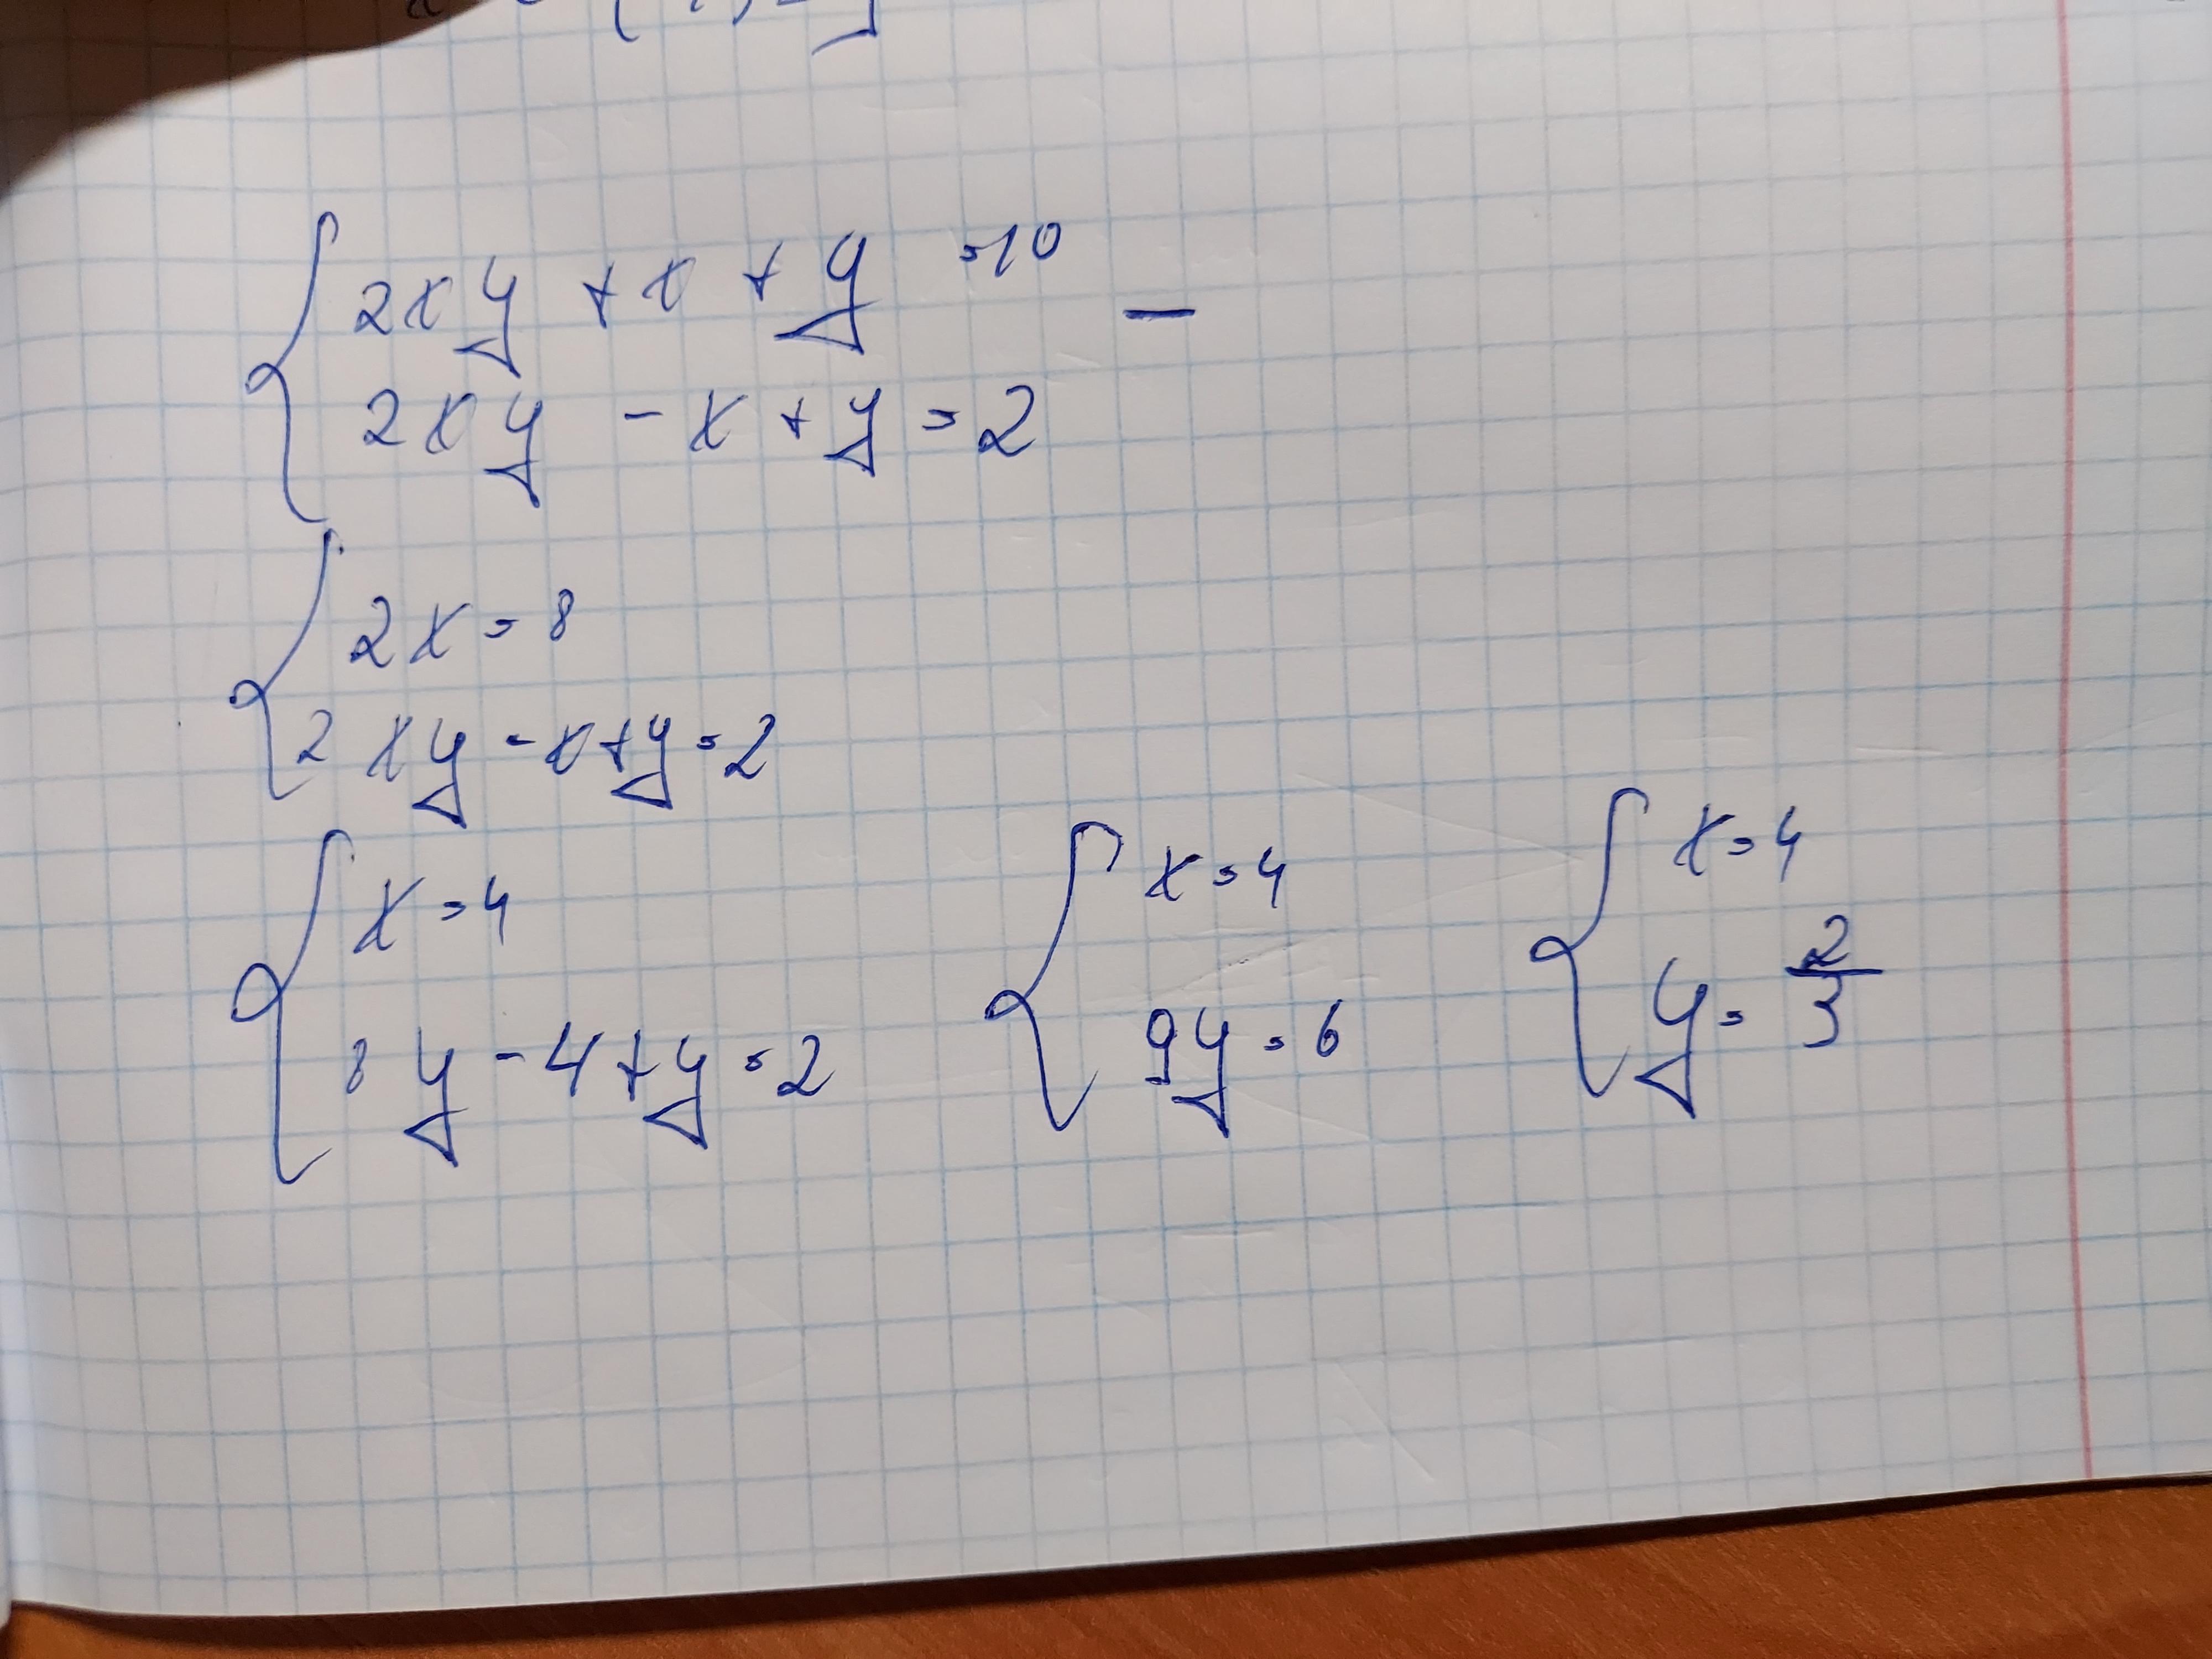 2xy + x + y = 10 —
2xy - x + y = 2
2x = 8
2xy - x + y = 2
x = 4
8y - 4 + y = 2
x = 4
9y = 6
x = 4
y = 2/3